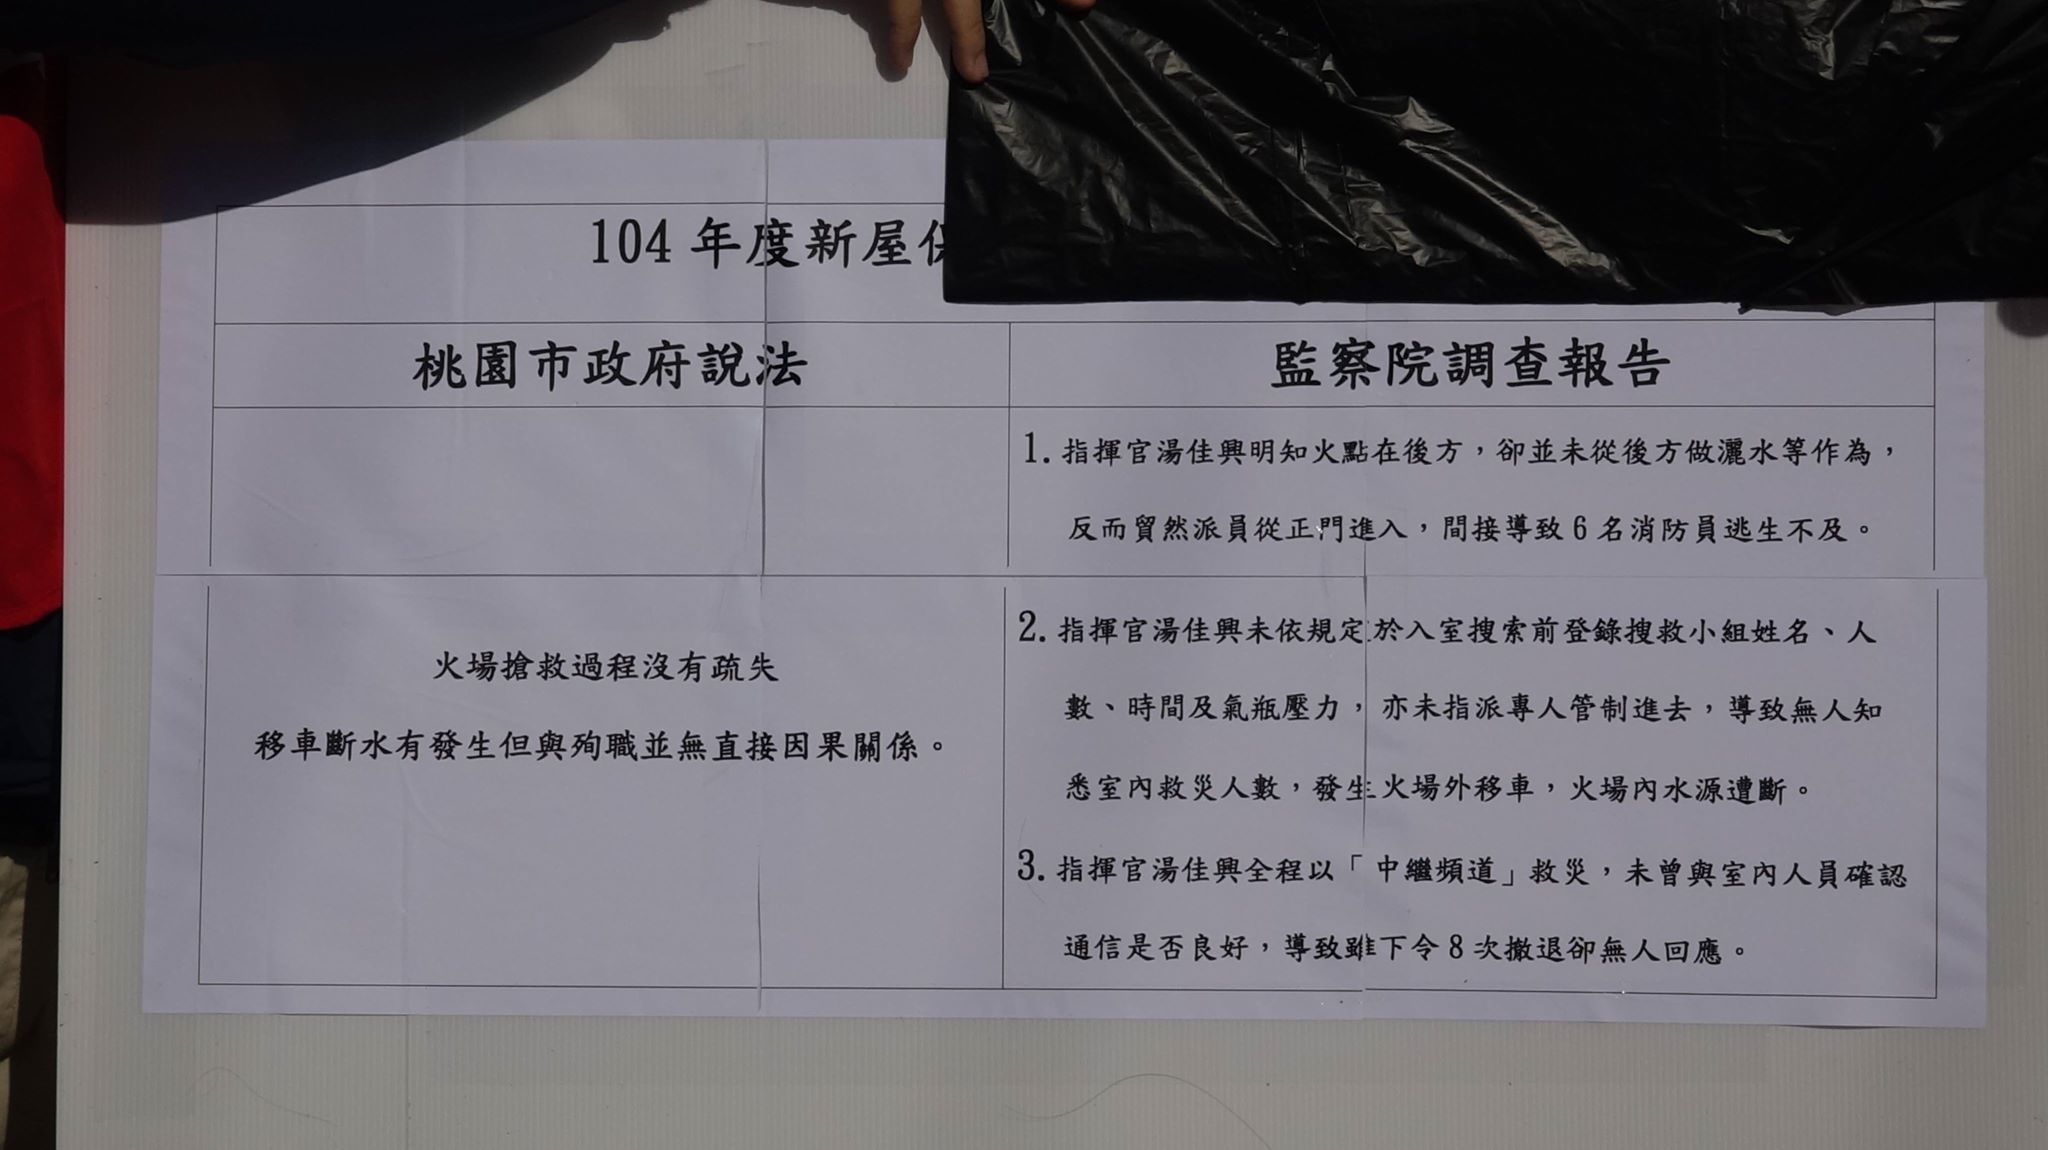 104年度新屋保
桃園市政府說法
監察院調查報告
火場搶救過程沒有疏失
移車斷水有發生但與殉職並無直接因果關係。
1.指揮官湯佳興明知火點在後方，卻並未從後方做灑水等作為，
反而貿然派員從正門進入，間接導致6名消防員逃生不及。
2.指揮官湯佳興未依規定於入室搜索前登錄搜救小組姓名、人
數、時間及氣瓶壓力，亦未指派專人管制進去，導致無人知
悉室內救災人數，發生火場外移車，火場內水源遭斷。
3.指揮官湯佳興全程以「中繼頻道」救災，未曾與室內人員確認
通信是否良好，導致雖下令8次撤退卻無人回應。